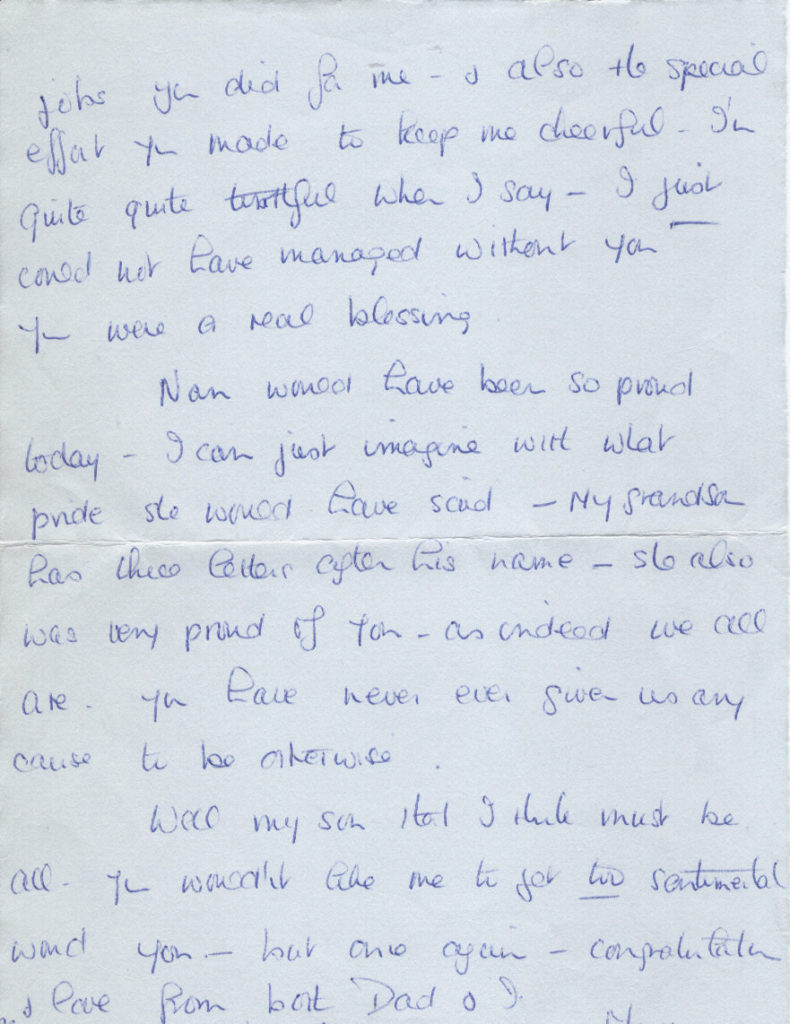 jobs you did for me - & also the special
effort you made to keep me cheerful - I'm
quite quite truthful when I say - I just
could not have managed without you
you were a real blessing
Nan would have been so proud
today - I can just imagine with what
pride she would have said - My grandson
has three letters after his name - she also
was very proud of you - as indeed we all
are. You have never ever given us any
cause to be otherwise.
Well my son that I think must be
all - you wouldn't like me to get too sentimental
would you - but once again - congratulations
& love from both Dad & I.